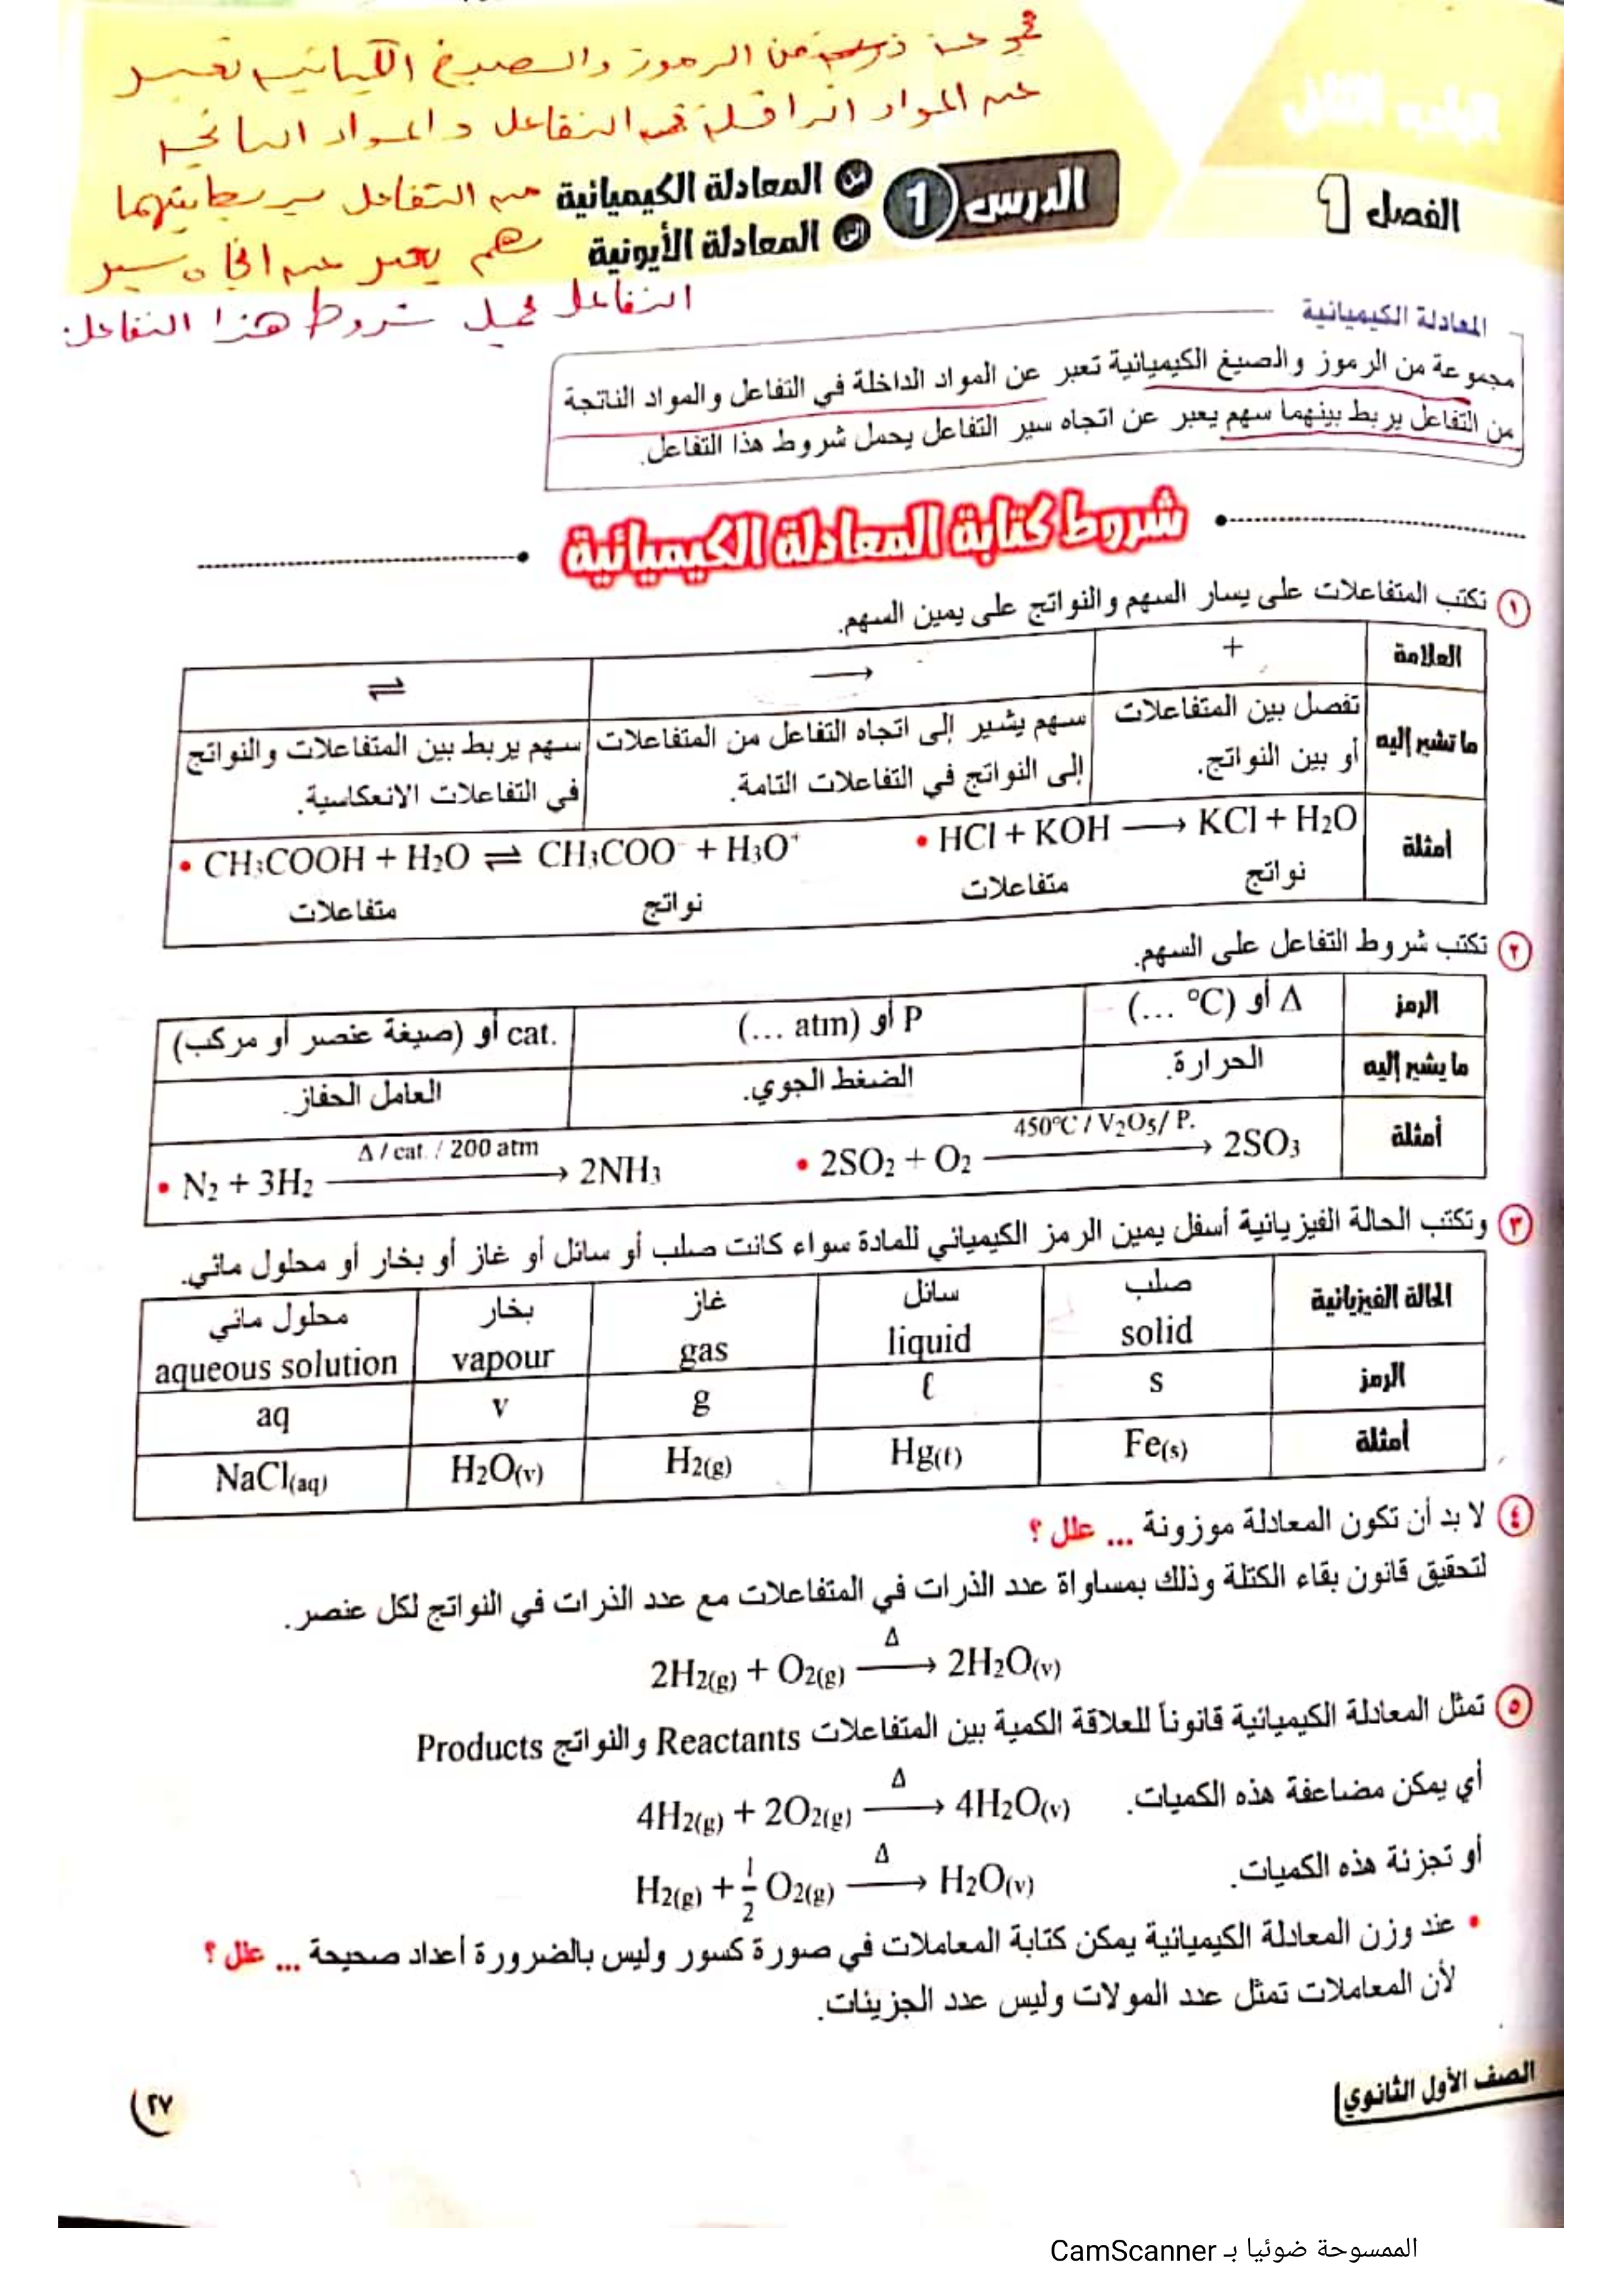 مجموعة من الرموز والصيغ الكيميائية تعبر
عن المواد الداخلة في التفاعل والمواد الناتجة
من التفاعل يربط بينهما
سهم يعبر عن اتجاه سير
التفاعل يحمل شروط هذا التفاعل
الباب الثاني
الفصل 1
الدرس 1
من المعادلة الكيميائية
إلى المعادلة الأيونية
المعادلة الكيميائية
مجموعة من الرموز والصيغ الكيميائية تعبر عن المواد الداخلة في التفاعل والمواد الناتجة
من التفاعل يربط بينهما سهم يعبر عن اتجاه سير التفاعل يحمل شروط هذا التفاعل.
شروط كتابة المعادلة الكيميائية
١ تكتب المتفاعلات على يسار السهم والنواتج على يمين السهم.
العلامة + ⟶ ⇌
ما تشير إليه
تفصل بين المتفاعلات
أو بين النواتج.
سهم يشير إلى اتجاه التفاعل من المتفاعلات
إلى النواتج في التفاعلات التامة.
سهم يربط بين المتفاعلات والنواتج
في التفاعلات الانعكاسية.
أمثلة
• HCl + KOH ⟶ KCl + H₂O
متفاعلات نواتج
• CH₃COOH + H₂O ⇌ CH₃COO⁻ + H₃O⁺
متفاعلات نواتج
٢ تكتب شروط التفاعل على السهم.
الرمز Δ أو (°C ...) P أو (atm ...) cat. أو (صيغة عنصر أو مركب)
ما يشير إليه الحرارة. الضغط الجوي. العامل الحفاز.
أمثلة
450°C / V₂O₅ / P.
• 2SO₂ + O₂ ⟶ 2SO₃
Δ / cat. / 200 atm
• N₂ + 3H₂ ⟶ 2NH₃
٣ وتكتب الحالة الفيزيائية أسفل يمين الرمز الكيميائي للمادة سواء كانت صلب أو سائل أو غاز أو بخار أو محلول مائي.
الحالة الفيزيائية صلب سائل غاز بخار محلول مائي
solid liquid gas vapour aqueous solution
الرمز s ℓ g v aq
أمثلة Fe(s) Hg(ℓ) H₂(g) H₂O(v) NaCl(aq)
٤ لا بد أن تكون المعادلة موزونة ... علل ؟
لتحقيق قانون بقاء الكتلة وذلك بمساواة عدد الذرات في المتفاعلات مع عدد الذرات في النواتج لكل عنصر.
Δ
2H₂(g) + O₂(g) ⟶ 2H₂O(v)
٥ تمثل المعادلة الكيميائية قانوناً للعلاقة الكمية بين المتفاعلات Reactants والنواتج Products
أي يمكن مضاعفة هذه الكميات.
Δ
4H₂(g) + 2O₂(g) ⟶ 4H₂O(v)
أو تجزئة هذه الكميات.
Δ
H₂(g) + ½ O₂(g) ⟶ H₂O(v)
• عند وزن المعادلة الكيميائية يمكن كتابة المعاملات في صورة كسور وليس بالضرورة أعداد صحيحة ... علل ؟
لأن المعاملات تمثل عدد المولات وليس عدد الجزيئات.
الصف الأول الثانوي
٢٧
الممسوحة ضوئيا بـ CamScanner